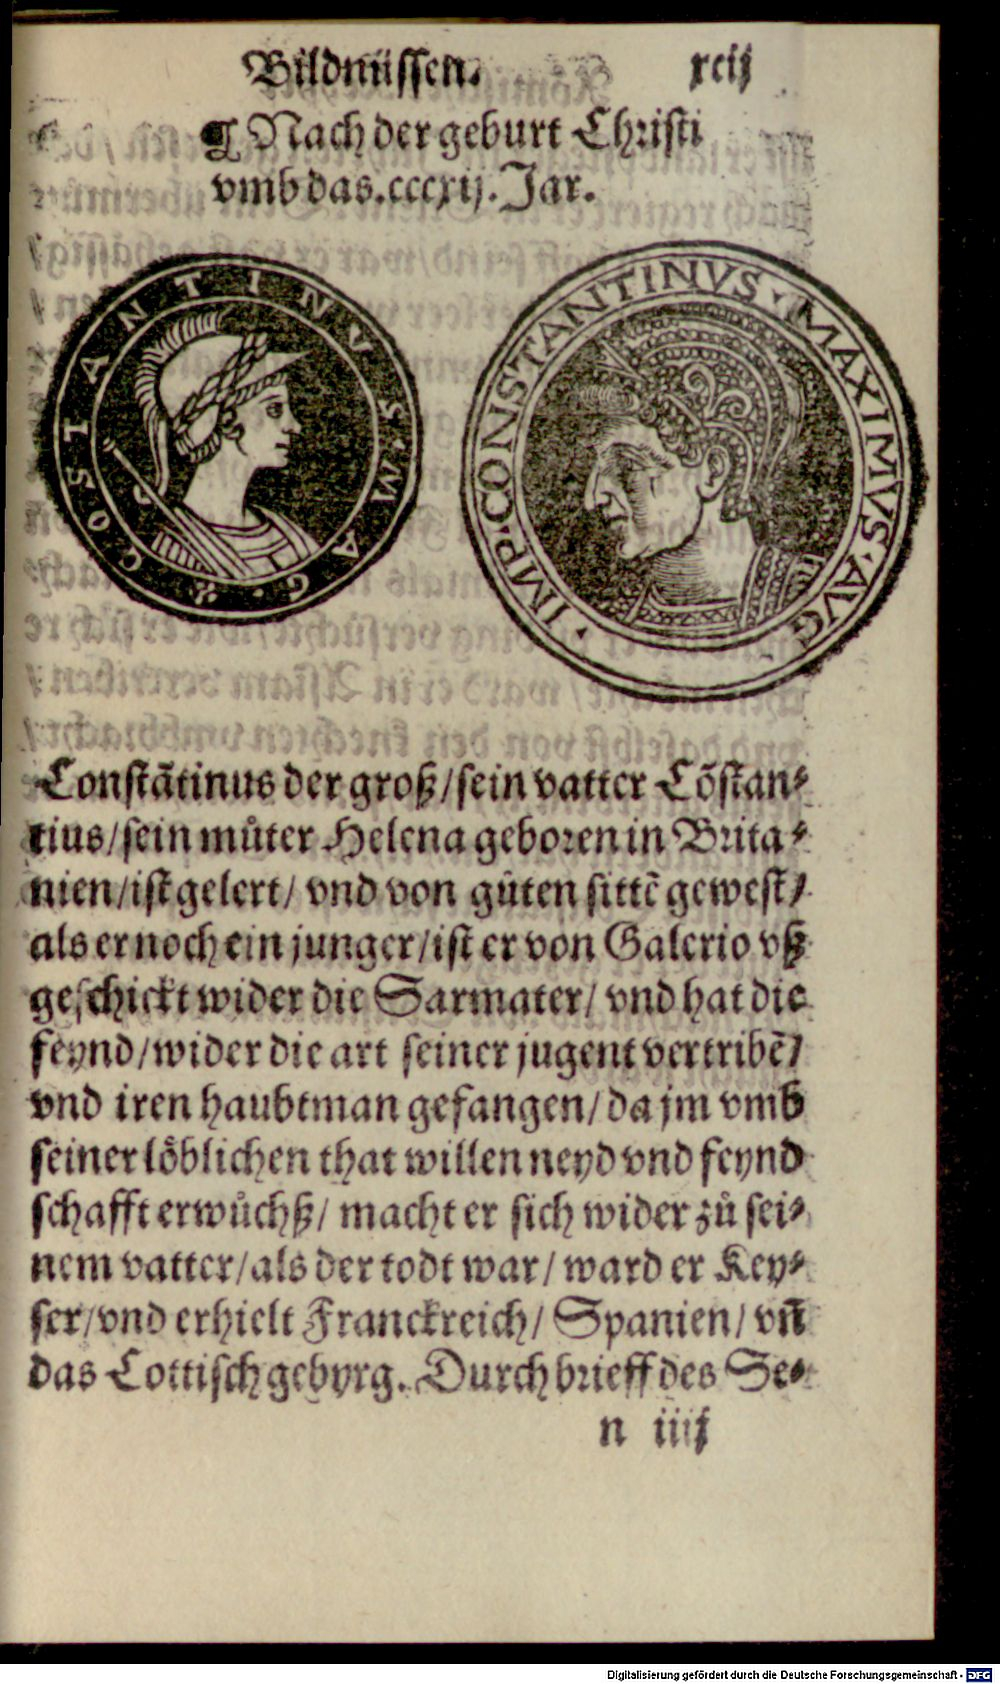 Bildnüssen. xcij
¶ Nach der geburt Christi
vmb das .cccxij. Jar.
COSTANTINVS · MAG · X
IMP · CONSTANTINVS · MAXIMVS · AVG ·
Constãtinus der groß/sein vatter Cõstan⸗
tius/sein můter Helena geboren in Brita⸗
nien/ist gelert/ vnd von gůten sittẽ gewest/
als er noch ein junger/ist er von Galerio vß
geschickt wider die Sarmater/ vnd hat die
feynd/wider die art seiner jugent vertribẽ/
vnd iren haubtman gefangen/ da jm vmb
seiner löblichen that willen neyd vnd feynd
schafft erwůchß/ macht er sich wider zů sei⸗
nem vatter/als der todt war/ ward er Key⸗
ser/vnd erhielt Franckreich/ Spanien/ vñ
das Cottisch gebyrg. Durch brieff des Se⸗
n iiij
Digitalisierung gefördert durch die Deutsche Forschungsgemeinschaft - DFG